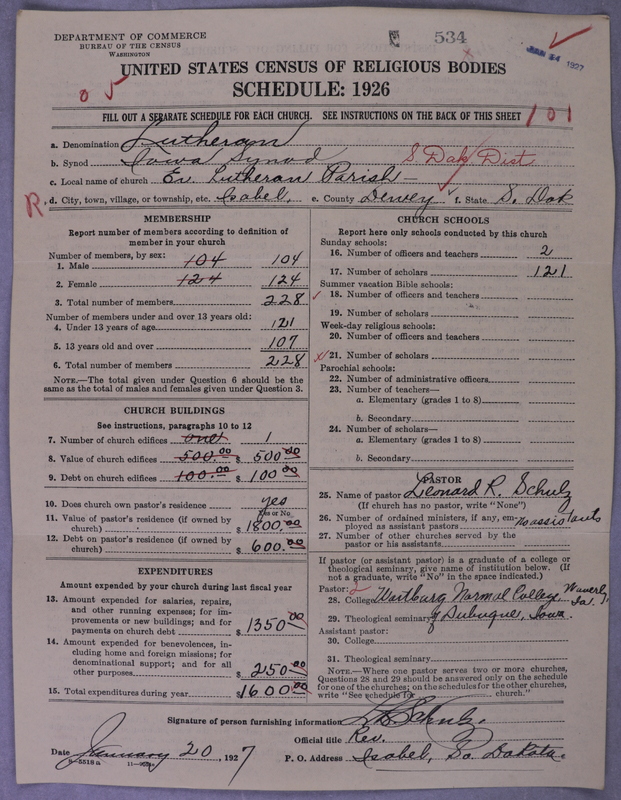 DEPARTMENT OF COMMERCE
BUREAU OF THE CENSUS
WASHINGTON
534
1927
UNITED STATES CENSUS OF RELIGIOUS BODIES
SCHEDULE: 1926
FILL OUT A SEPARATE SCHEDULE FOR EACH CHURCH. SEE INSTRUCTIONS ON THE BACK OF THIS SHEET
101
a. Denomination Lutheran
b. Synod Iowa Synod S. Dak Dist
c. Local name of church Ev. Lutheran Parish
R
d. City, town, village, or township, etc. Isabel, e. County Dewey f. State S. Dak
MEMBERSHIP
Report number of members according to definition of
member in your church
Number of members, by sex:
1. Male 104 104
2. Female 124 124
3. Total number of members 228
Number of members under and over 13 years old:
4. Under 13 years of age 121
5. 13 years old and over 107
6. Total number of members 228
NOTE.—The total given under Question 6 should be
same as the total of males and females given under Question 3.
CHURCH BUILDINGS
See instructions, paragraphs 10 to 12
7. Number of church edifices one 1
8. Value of church edifices 500.00 $ 500.00
9. Debt on church edifices 100.00 $ 100.00
10. Does church own pastor's residence yes
Yes or No
11. Value of pastor's residence (if owned by
church) $ 1800.00
12. Debt on pastor's residence (if owned by
church) $ 600.00
EXPENDITURES
Amount expended by your church during last fiscal year
13. Amount expended for salaries, repairs,
and other running expenses; for im-
provements or new buildings; and for
payments on church debt $ 1350.00
14. Amount expended for benevolences, in-
cluding home and foreign missions; for
denominational support; and for all
other purposes $ 250.00
15. Total expenditures during year $ 1600.00
CHURCH SCHOOLS
Report here only schools conducted by this church
Sunday schools:
16. Number of officers and teachers 2
17. Number of scholars 121
Summer vacation Bible schools:
18. Number of officers and teachers
19. Number of scholars
Week-day religious schools:
20. Number of officers and teachers
21. Number of scholars
Parochial schools:
22. Number of administrative officers
23. Number of teachers—
a. Elementary (grades 1 to 8)
b. Secondary
24. Number of scholars—
a. Elementary (grades 1 to 8)
b. Secondary
PASTOR
25. Name of pastor Leonard R. Schulz
(If church has no pastor, write "None")
26. Number of ordained ministers, if any, em-
ployed as assistant pastors no assistants
27. Number of other churches served by the
pastor or his assistants
If pastor (or assistant pastor) is a graduate of a college or
theological seminary, give name of institution below. (If
not a graduate, write "No" in the space indicated.)
Pastor: 2
28. College Wartburg Normal College Waverly, Ia.
29. Theological seminary of Dubuque, Iowa.
Assistant pastor:
30. College
31. Theological seminary
NOTE.—Where one pastor serves two or more churches,
Questions 28 and 29 should be answered only on the schedule
for one of the churches; on the schedules for the other churches,
write "See schedule for church."
Signature of person furnishing information L R Schulz.
Official title Rev.
Date January 20, 1927 P. O. Address Isabel, So. Dakota.